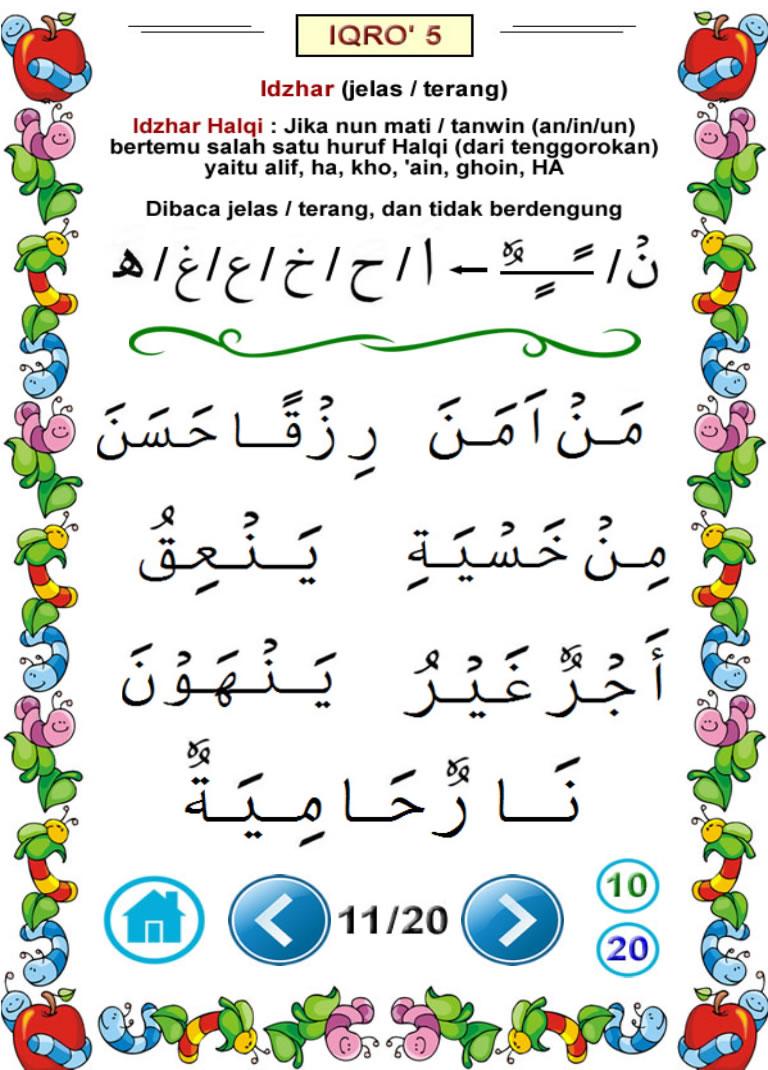 IQRO' 5
Idzhar (jelas / terang)
Idzhar Halqi : Jika nun mati / tanwin (an/in/un)
bertemu salah satu huruf Halqi (dari tenggorokan)
yaitu alif, ha, kho, 'ain, ghoin, HA
Dibaca jelas / terang, dan tidak berdengung
نْ / ـًـٍـٌ ← ا / ح / خ / ع / غ / ه
مَـنْ اٰمَـنَ رِزْقًـا حَسَنَ
مِـنْ خَسْيَـةِ يَـنْـعِـقُ
أَجْـرٌ غَيْـرُ يَـنْـهَـوْنَ
نَـا رٌحَـا مِـيَـةٌ
11/20
10
20